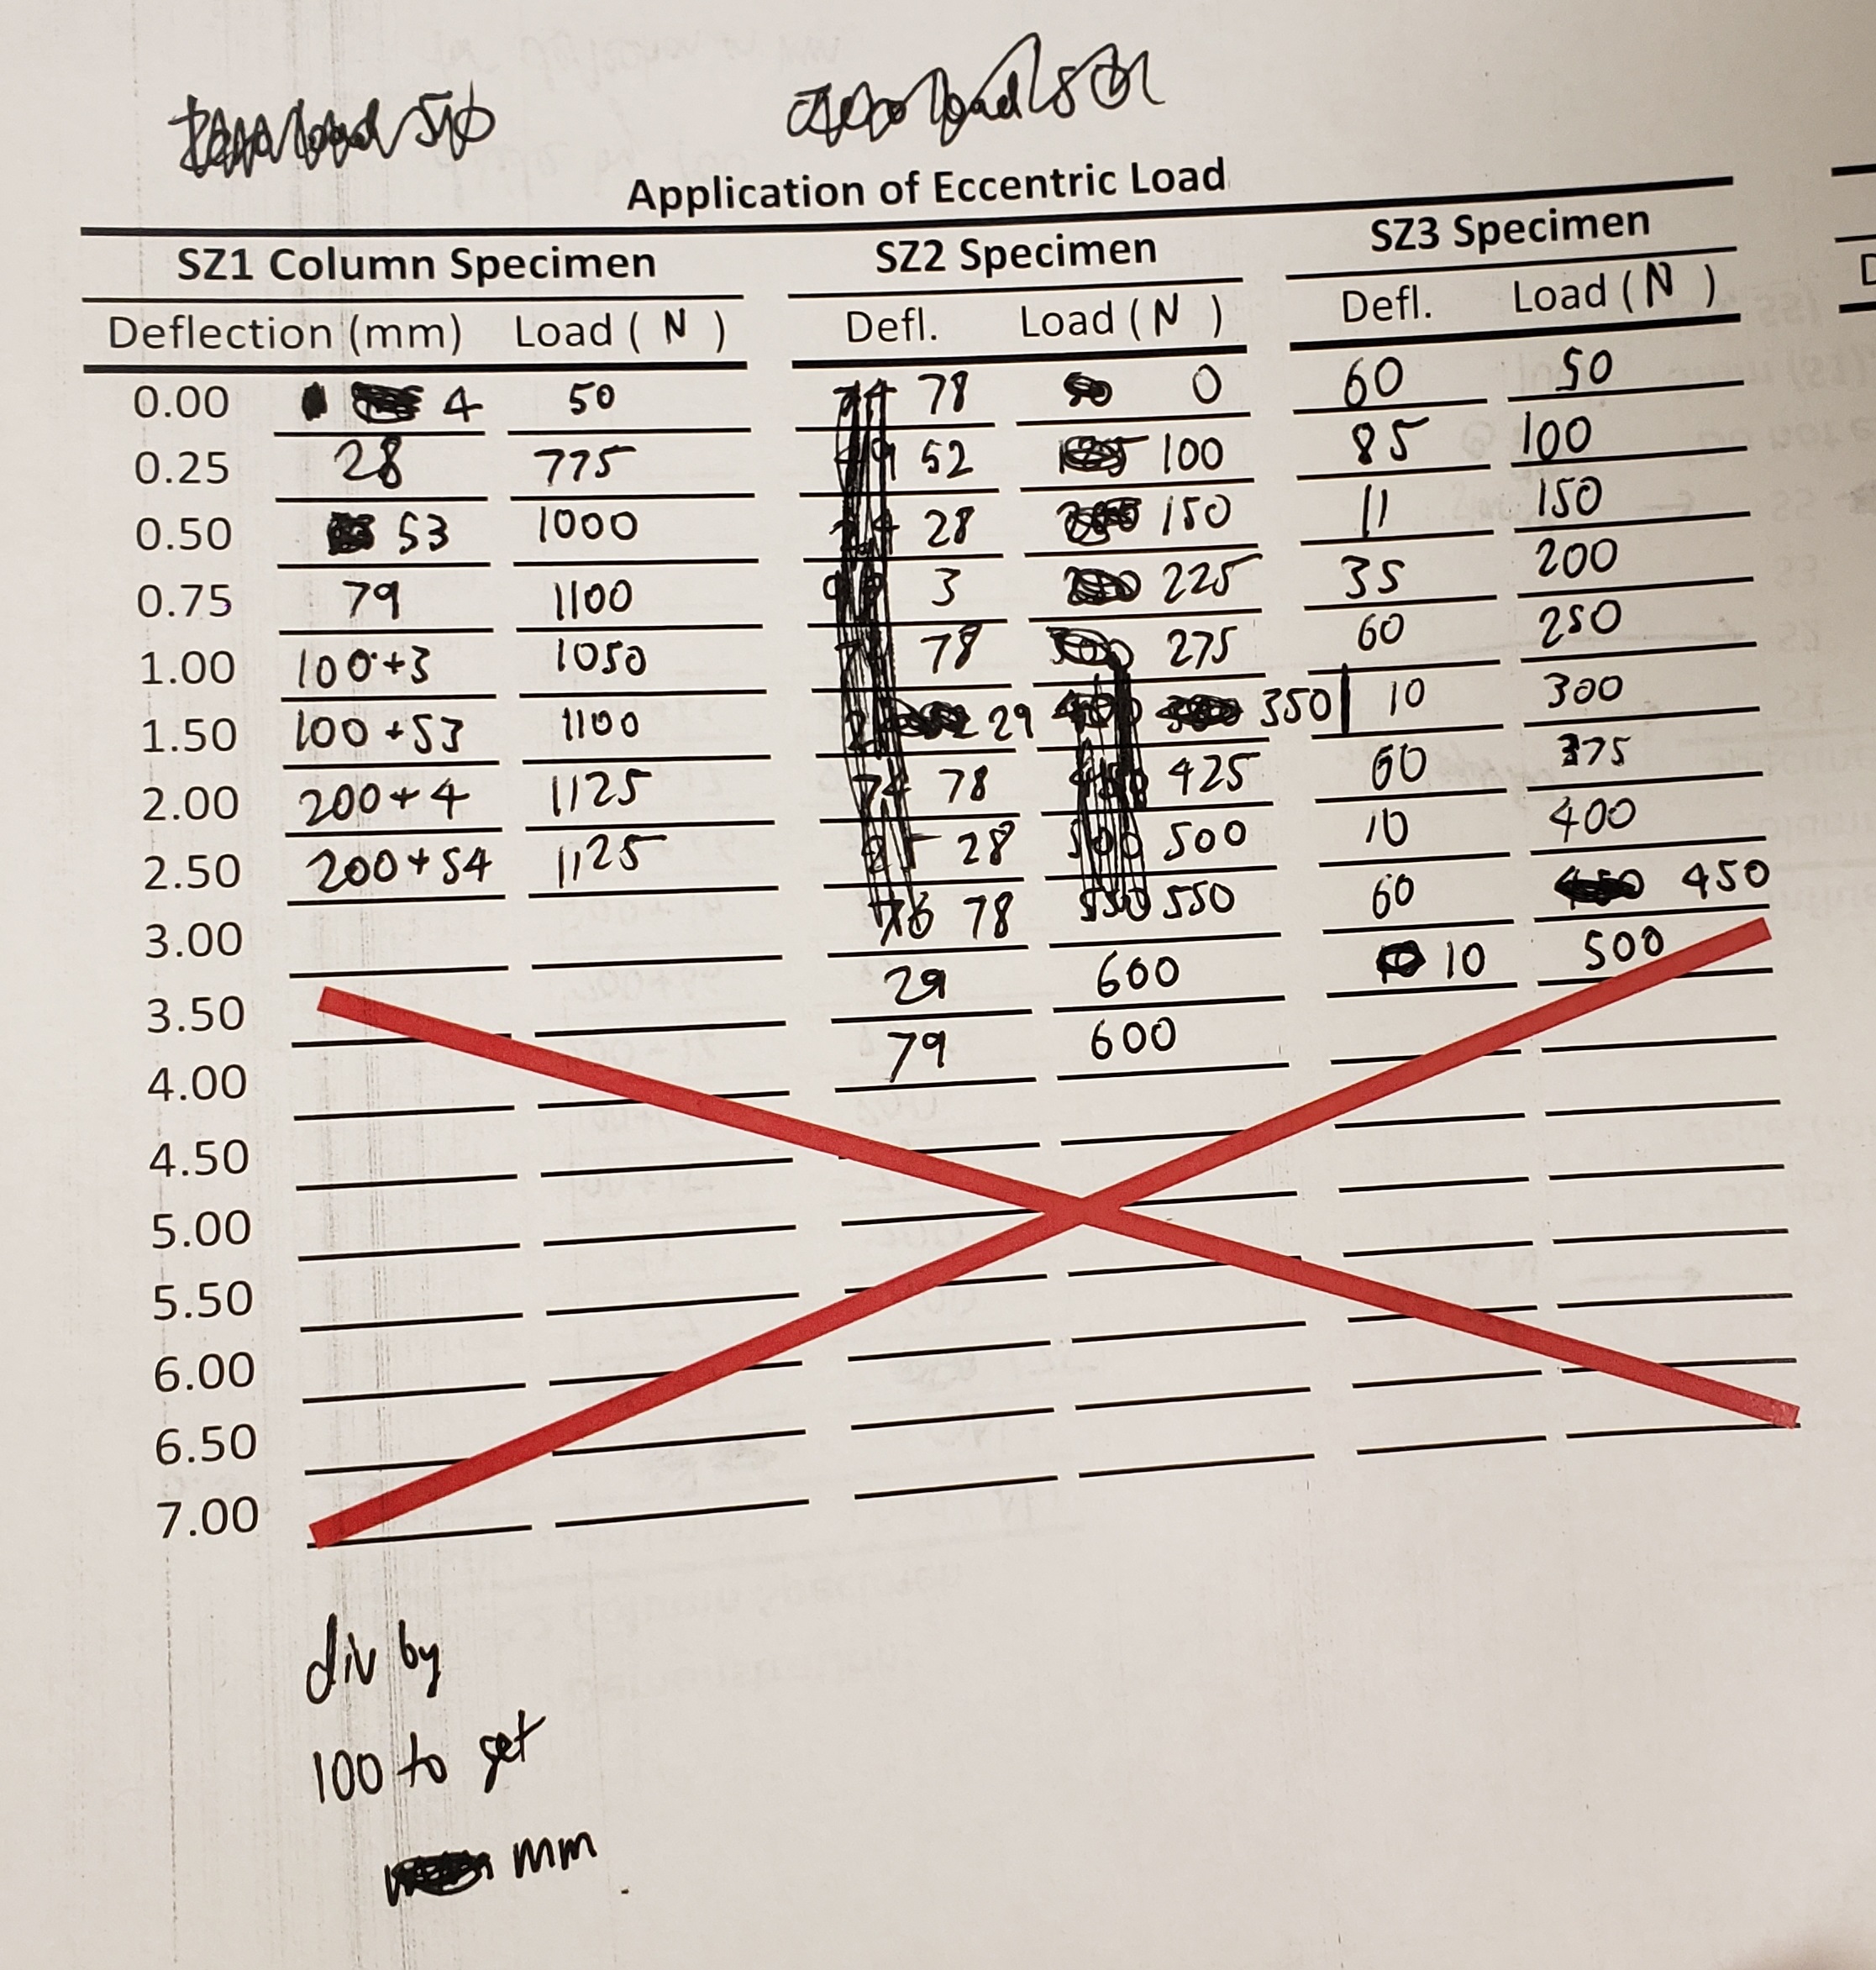 Application of Eccentric Load
SZ1 Column Specimen SZ2 Specimen SZ3 Specimen
Deflection (mm) Load ( N ) Defl. Load ( N ) Defl. Load ( N )
0.00 4 50 78 0 60 50
0.25 28 775 52 100 85 100
0.50 53 1000 28 150 11 150
0.75 79 1100 3 225 35 200
1.00 100+3 1050 78 275 60 250
1.50 100+53 1100 29 350 10 300
2.00 200+4 1125 78 425 60 375
2.50 200+54 1125 28 500 10 400
3.00 78 550 60 450
3.50 29 600 10 500
4.00 79 600
4.50
5.00
5.50
6.00
6.50
7.00
div by
100 to get
mm